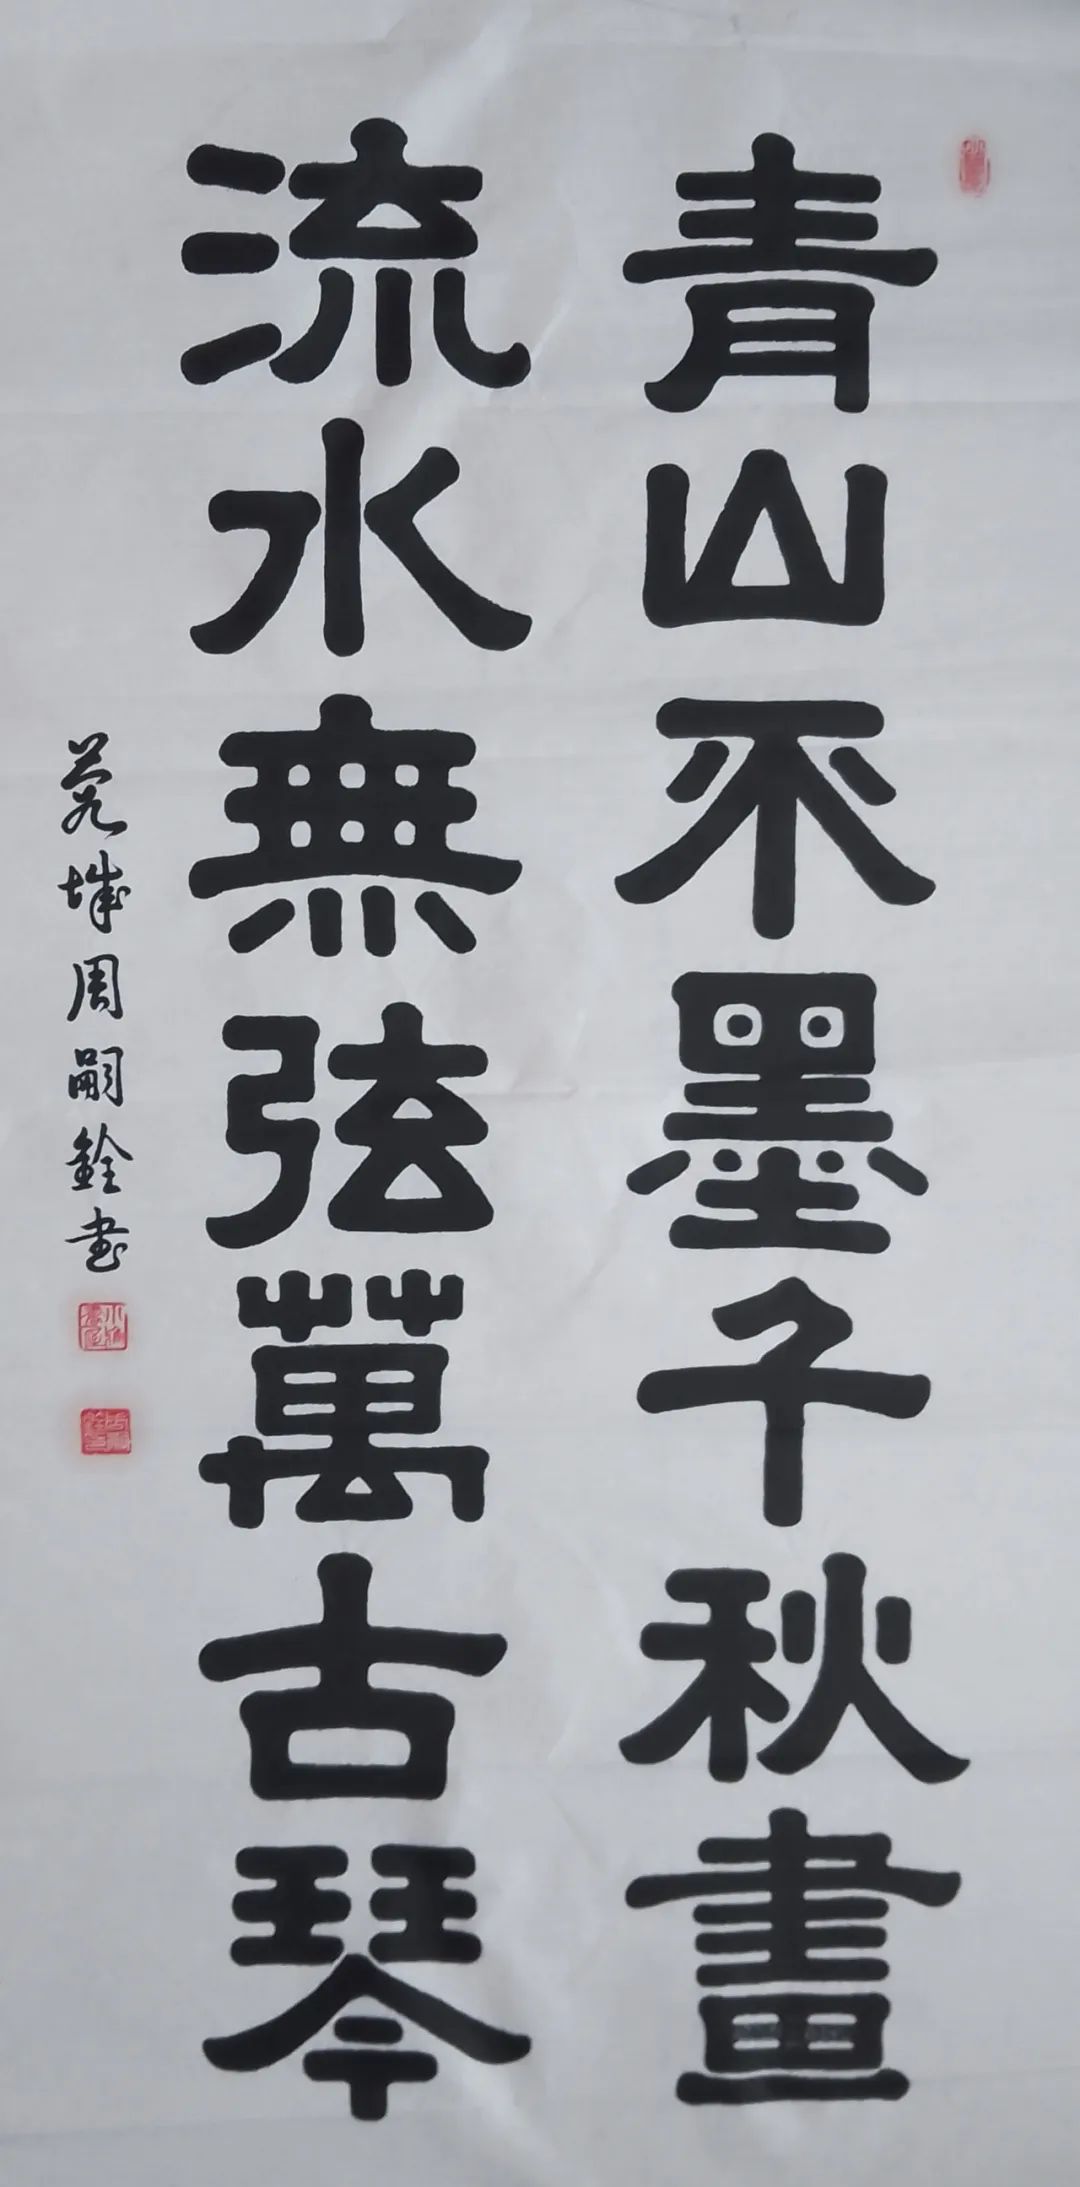 青山不墨千秋畫
流水無弦萬古琴
蓉城周嗣銓书